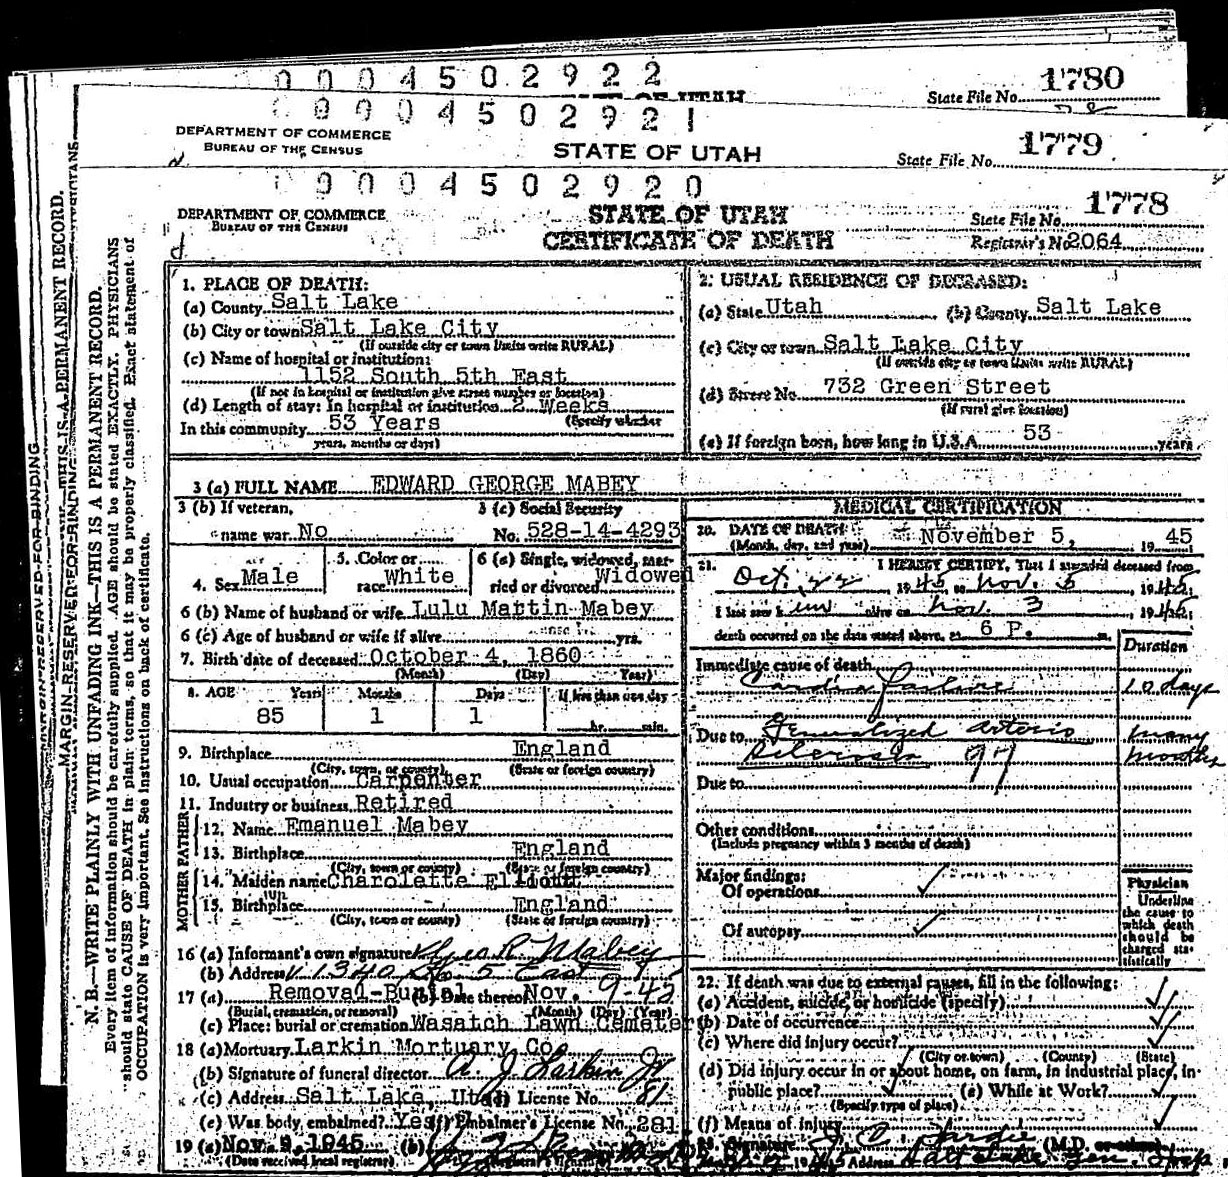 0004502922
STATE OF UTAH
State File No. 1780
0004502921
DEPARTMENT OF COMMERCE
BUREAU OF THE CENSUS
STATE OF UTAH
State File No. 1779
0004502920
DEPARTMENT OF COMMERCE
BUREAU OF THE CENSUS
STATE OF UTAH
CERTIFICATE OF DEATH
State File No. 1778
Registrar's No 2064
MARGIN RESERVED FOR BINDING
THIS IS A PERMANENT RECORD.
N. B.—WRITE PLAINLY WITH UNFADING INK—THIS IS A PERMANENT RECORD.
Every item of information should be carefully supplied. AGE should be stated EXACTLY. PHYSICIANS
should state CAUSE OF DEATH in plain terms, so that it may be properly classified. Exact statement of
OCCUPATION is very important. See instructions on back of certificate.
1. PLACE OF DEATH:
(a) County Salt Lake
(b) City or town Salt Lake City
(If outside city or town limits write RURAL)
(c) Name of hospital or institution:
1152 South 5th East
(If not in hospital or institution give street number or location)
(d) Length of stay: In hospital or institution 2 Weeks
(Specify whether
In this community 53 Years
years, months or days)
2. USUAL RESIDENCE OF DECEASED:
(a) State Utah (b) County Salt Lake
(c) City or town Salt Lake City
(If outside city or town limits write RURAL)
(d) Street No. 732 Green Street
(If rural give location)
(e) If foreign born, how long in U.S.A. 53 years
3 (a) FULL NAME EDWARD GEORGE MABEY
3 (b) If veteran, 3 (c) Social Security
name war No No. 528-14-4293
4. Sex Male 5. Color or race White 6 (a) Single, widowed, married or divorced Widowed
6 (b) Name of husband or wife Lulu Mattin Mabey
6 (c) Age of husband or wife if alive yrs.
7. Birth date of deceased October 4, 1860
(Month) (Day) (Year)
8. AGE Years Months Days If less than one day
85 1 1 hr. min.
9. Birthplace England
(City, town, or county) (State or foreign country)
10. Usual occupation Carpenter
11. Industry or business Retired
FATHER
12. Name Emanuel Mabey
13. Birthplace England
(City, town or county) (State or foreign country)
MOTHER
14. Maiden name Charolette Elliott
15. Birthplace England
(City, town or county) (State or foreign country)
16 (a) Informant's own signature Geo R. Mabey
(b) Address 1340 So 5 East
17 (a) Removal-Burial (b) Date thereof Nov. 9-45
(Burial, cremation, or removal) (Month) (Day) (Year)
(c) Place: burial or cremation Wasatch Lawn Cemeter
18 (a) Mortuary Larkin Mortuary Co.
(b) Signature of funeral director A. J. Larkin Jr
(c) Address Salt Lake, Utah (d) License No. 81
(e) Was body embalmed? Yes (f) Embalmer's License No. 281
19 (a) Nov. 9, 1945 (b)
(Date received local registrar)
MEDICAL CERTIFICATION
20. DATE OF DEATH: November 5, 1945
(Month, day, and year)
21. I HEREBY CERTIFY, That I attended deceased from
Oct. 22 1945 to Nov. 5, 1945,
I last saw him alive on Nov. 3 1945,
death occurred on the date stated above, at 6 P. m.
Duration
Immediate cause of death
Cardiac Failure 10 days
Due to Generalized Arterio many
Sclerosis 97 months
Due to
Other conditions
(Include pregnancy within 3 months of death)
Major findings:
Of operations
Of autopsy
Physician
Underline
the cause to
which death
should be
charged sta-
tistically
22. If death was due to external causes, fill in the following:
(a) Accident, suicide, or homicide (specify)
(b) Date of occurrence
(c) Where did injury occur?
(City or town) (County) (State)
(d) Did injury occur in or about home, on farm, in industrial place, in
public place? (e) While at Work?
(Specify type of place)
(f) Means of injury
23. Signature (M.D.
Address Salt Lake Gen. Hosp.